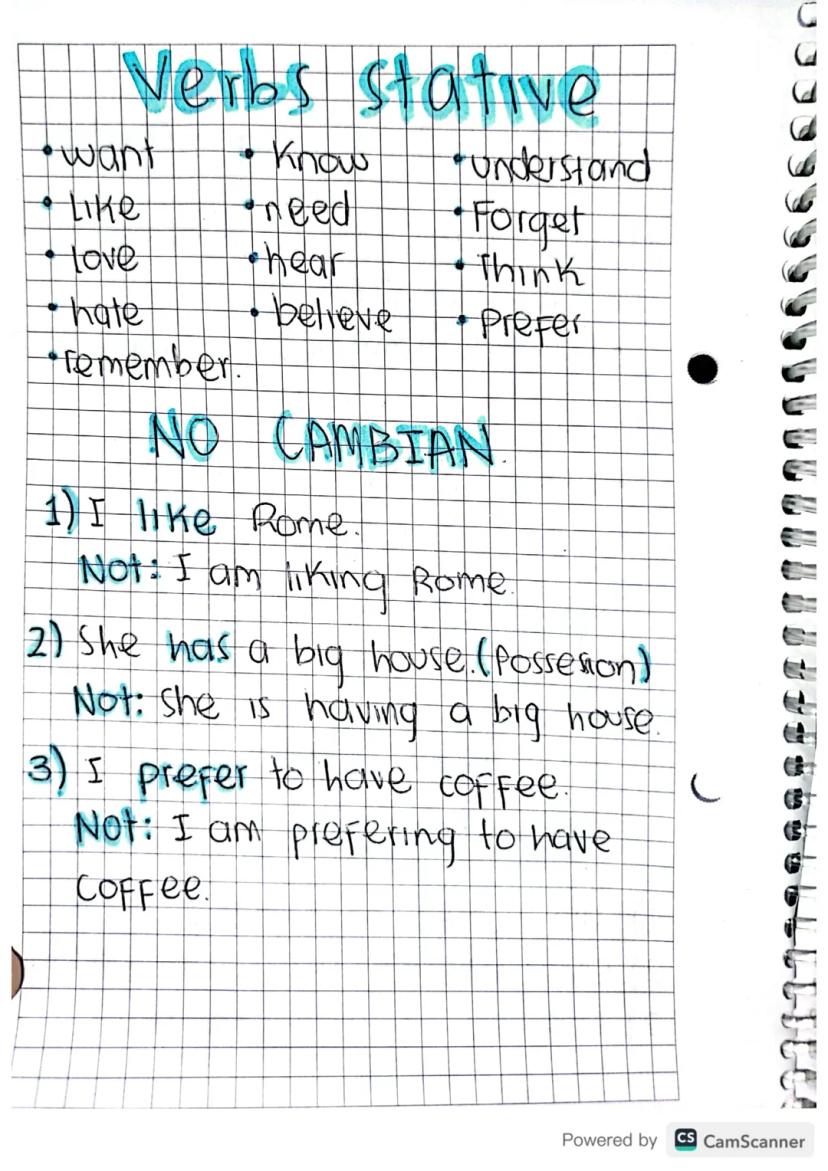 Verbs stative
• want • Know • understand
• Like • need • Forget
• love • hear • Think
• hate • believe • Prefer
• remember.
NO CAMBIAN.
1) I like Rome.
Not: I am liking Rome.
2) She has a big house. (Possesion)
Not: She is having a big house.
3) I prefer to have coffee.
Not: I am prefering to have
coffee.
Powered by CS CamScanner